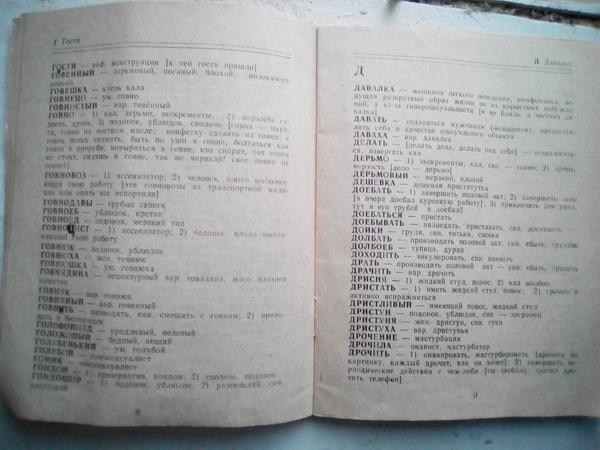 Г Гости
ГОСТИ — эвф. менструации [к ней гости пришли]
ГОВЕННЫЙ — дерьмовый, посаный, плохой, низокачест-
венной
ГОВЕШКА — кусок кала
ГОВНЕЦО — ум. говно
ГОВНИСТЫЙ — вар. говённый
ГОВНО — 1) кал, дерьмо, экскременты; 2) мерзость, га-
дость, дрянь; 3) подонок, ублюдок, сволочь [говна — пара-
ша; говно на постном масле; конфетку сделать из говна; с
говна пенки снимать; быть по уши в говне; болтаться как
говно в проруби; ковыряться в говне; кто спорит, тот говна
не стоит; сидишь в говне, так не чирикай! свое говно не
воняет]
ГОВНОВОЗ — 1) ассенизатор; 2) человек, плохо выполня-
ющий свою работу [эти говновозы из транспортной мили-
ции нам опять все испортили]
ГОВНОДАВЫ — грубые сапоги
ГОВНОЕБ — ублюдок, кретин
ГОВНОЕД — подонок, мерзкий тип
ГОВНОЧИСТ — 1) ассенизатор; 2) человек, плохо выпол-
няющий свою работу
ГОВНЮК — подонок, ублюдок
ГОВНЮХА — жен. говнюк
ГОВНЮШКА — ум. говнюха
ГОВНЯДИНА — нецензурный вар. говядина, мясо плохого
качества
ГОВНЯК — вар. говнюк
ГОВНЯНЫЙ — вар. говенный
ГОВНИТЬ — изводить, син. смешать с говном; 2) приво-
дить в беспорядок
ГОЛОВОПИЗД — уродливый, нелепый
ГОЛОЖОПЫЙ — бедный, нищий
ГОЛУБЕНЬКИЙ — ум. голубой
ГОЛУБОЙ — гомосексуалист
ГОМИК — гомосексуалист
ГОНДОН — 1) презерватив, кондом; 2) сволочь, подонок
ГОНДОШИР — 1) подонок, ублюдок; 2) разгильдяй, син.
8
Д Давалка
Д
ДАВАЛКА — женщина легкого поведения, нимфоманка, ве-
дущая развратный образ жизни не из корыстных побужде-
ний, а из-за гиперсексуальности [я не бляди, а честная да-
валка]
ДАВАТЬ — отдаваться мужчинам (женщинам), предостав-
лять себя в качестве сексуального объекта
ДАВАХА — вар. давалка
ДЕЛАТЬ — [делать дела, делать под себя] — испражнять-
ся, извергать кал
ДЕРЬМО — 1) экскременты, кал, син. — говно; 2) дрянь,
мерзость [дело — дерьмо]
ДЕРЬМОВЫЙ — мерзкий, плохой
ДЕШЕВКА — дешевая проститутка
ДОЕБАТЬ — 1) завершить половой акт; 2) завершить дело
[я вчера доебал курсовую работу]; 3) прикончить [он упал,
тут я его трубой и доебал]
ДОЕБАТЬСЯ — пристать
ДОЕБЫВАТЬ — надоедать, приставать, син. доставать
ДОЙКИ — груди, син. титьки, сиськи
ДОЛБАТЬ — производить половой акт, син. ебать, трахать
ДОЛБОЕБ — тупица, дурак
ДОХОДИТЬ — эякулировать, син. кончать
ДРАТЬ — производить половой акт — син. ебать, трахать
ДРАЧИТЬ — вар. дрочить
ДРИСНЯ — 1) жидкий стул, понос; 2) кал вообще
ДРИСТАТЬ — 1) иметь жидкий стул, понос; 2) громко и
активно испражняться
ДРИСТЛИВЫЙ — имеющий понос, жидкий стул
ДРИСТУН — подонок, ублюдок, син. — засранец
ДРИСТУНЯ — жен. дристун, син. сука
ДРИСТУХА — вар. дристунья
ДРОЧЕНИЕ — мастурбация
ДРОЧИЛА — онанист, мастурбатор
ДРОЧИТЬ — 1) онанировать, мастурбировать [дрочить на
картинку, каждый дрочит, как он хочет]; 2) совершать пе-
риодические действия с чем-либо [ты заебал, хватит дро-
чить телефон]
9